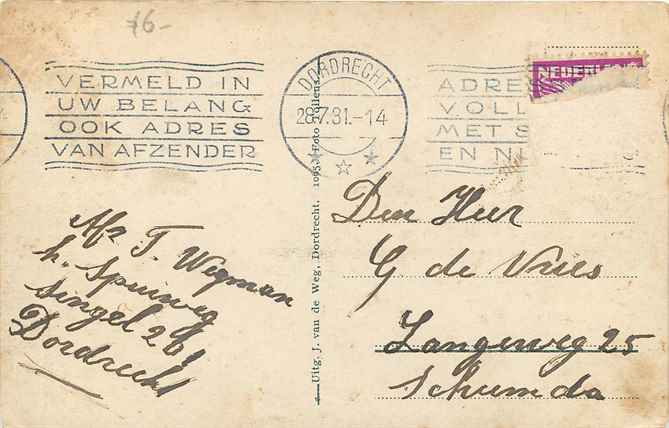 76-
VERMELD IN
UW BELANG
OOK ADRES
VAN AFZENDER
DORDRECHT
28.7.31.-14
ADRES
VOLL
MET S
EN N
NEDERLAND
Uitg. J. van de Weg, Dordrecht.
Foto
Den Heer
G de Vries
Langeweg 25
Afz T. Wegman
h. Spuiweg
Singel 261
Dordrecht